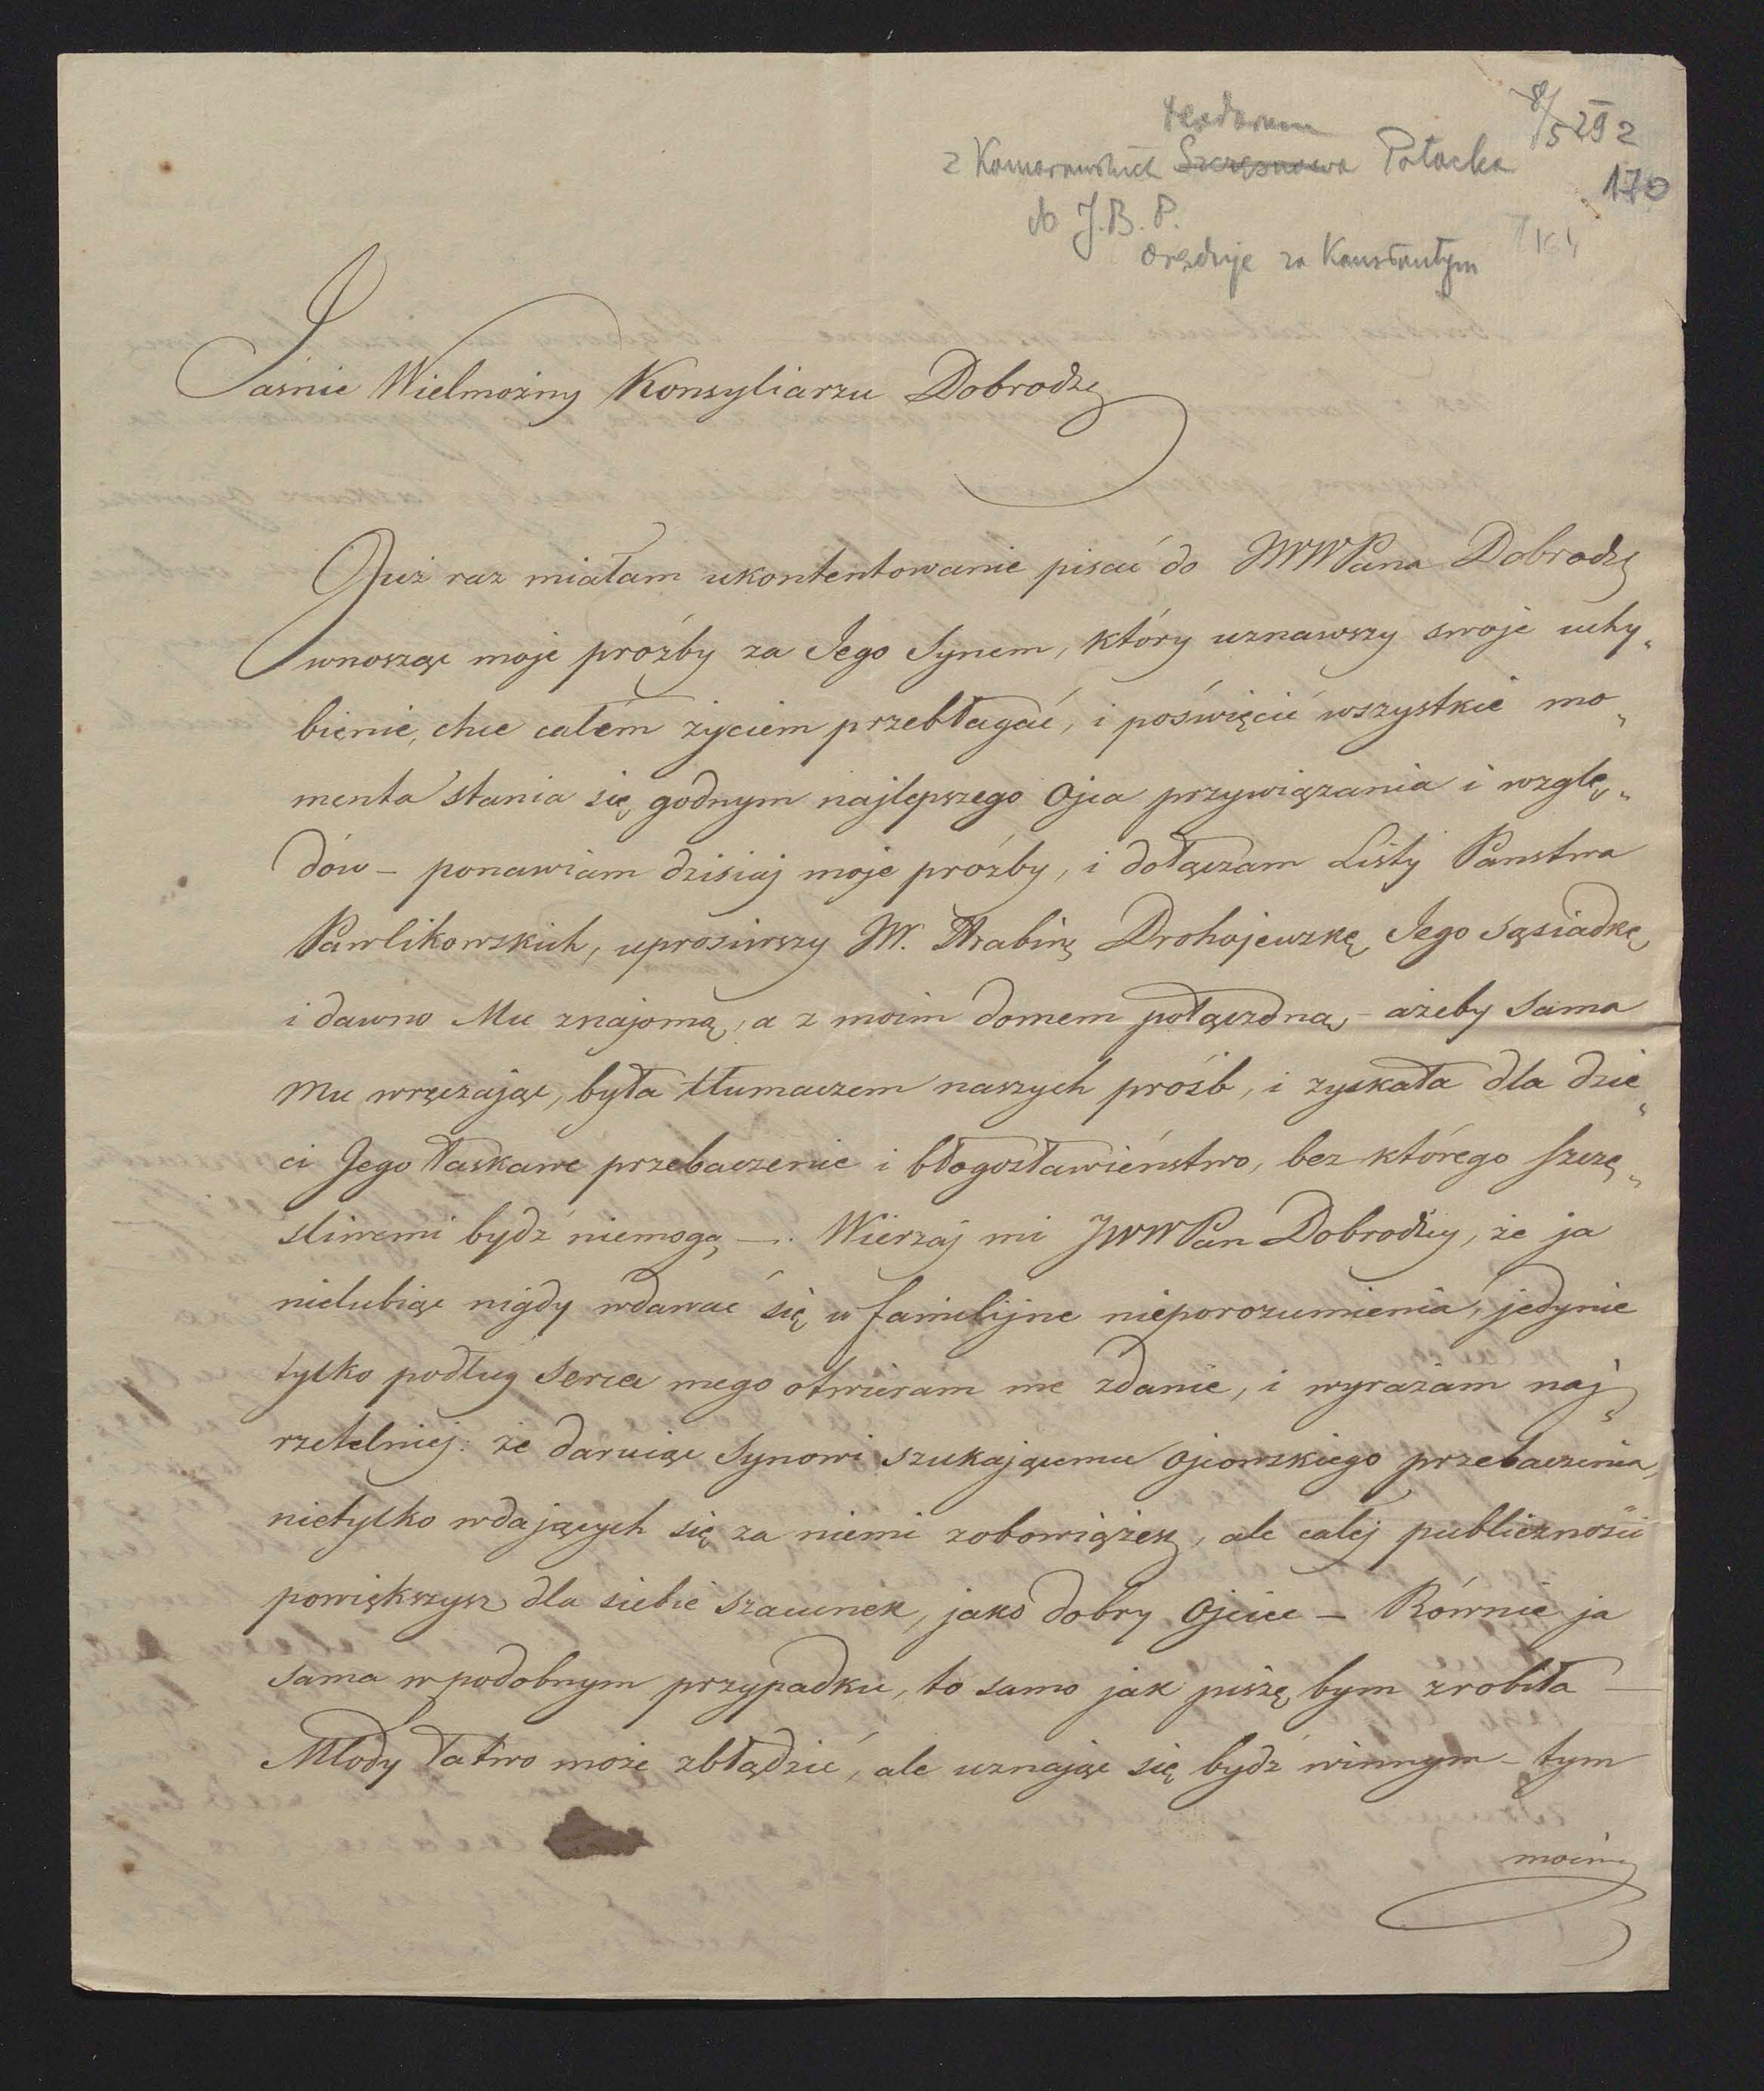 8/5 292
z Komorowskich Szczęsnowa Potocka
170
do J. B. P.
oręduje za Konstantym
Jaśnie Wielmożny Konsyliarzu Dobrodz
Już raz miałam ukontentowanie pisać do JWWPana Dobrodz
wnosząc moje prożby za Jego Synem, który uznawszy swoje uchy„
bienie, chce całém życiem przebłagać, i poświęcić wszystkie mo„
menta stania się godnym najlepszego Ojca przywiązania i wzglę„
dów – ponawiam dzisiaj moje prożby, i dołączam Listy Panstwa
Pawlikowskich, uprosiwszy JW. Hrabinę Drohojewzkę Jego sąsiadkę
i dawno Mu znajomą, a z moim domem połączoną, – ażeby Sama
Mu wręczając, była tłumaczem naszych prośb, i zyskała dla dzie„
ci Jego łaskawe przebaczenie i błogosławieństwo, bez którego szczę„
sliwemi bydź niemogą –. Wierzaj mi JWWPan Dobrodziy, że ja
nielubiąc nigdy wdawać się w familijne nieporozumienia, jedynie
tylko podług serca mego otwieram me zdanie, i wyrażam naj„
rzetelniej: że daruiąc Synowi szukającemu ojcowskiego przebaczenia,
nietylko wdających się za niemi zobowiążesz, ale całej publicznośći
powiększysz dla siebie szacunek, jako dobry Ojciec – Równie ja
sama w podobnym przypadku, to samo jak piszę bym zrobiła –
Młody łatwo może zbłądzić, ale uznając się bydź winnym – tym
mocniej